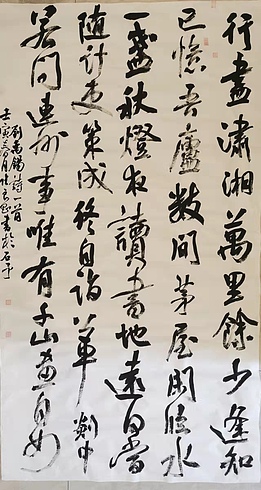 行盡瀟湘萬里餘少逢知
己憶吾廬數間茅屋閑臨水
一盞秋燈夜讀書地遠何當
隨計吏策成終自詣公車剡中
若問連州事唯有千山畫不如
劉禹錫詩一首
壬寅 月 書於石